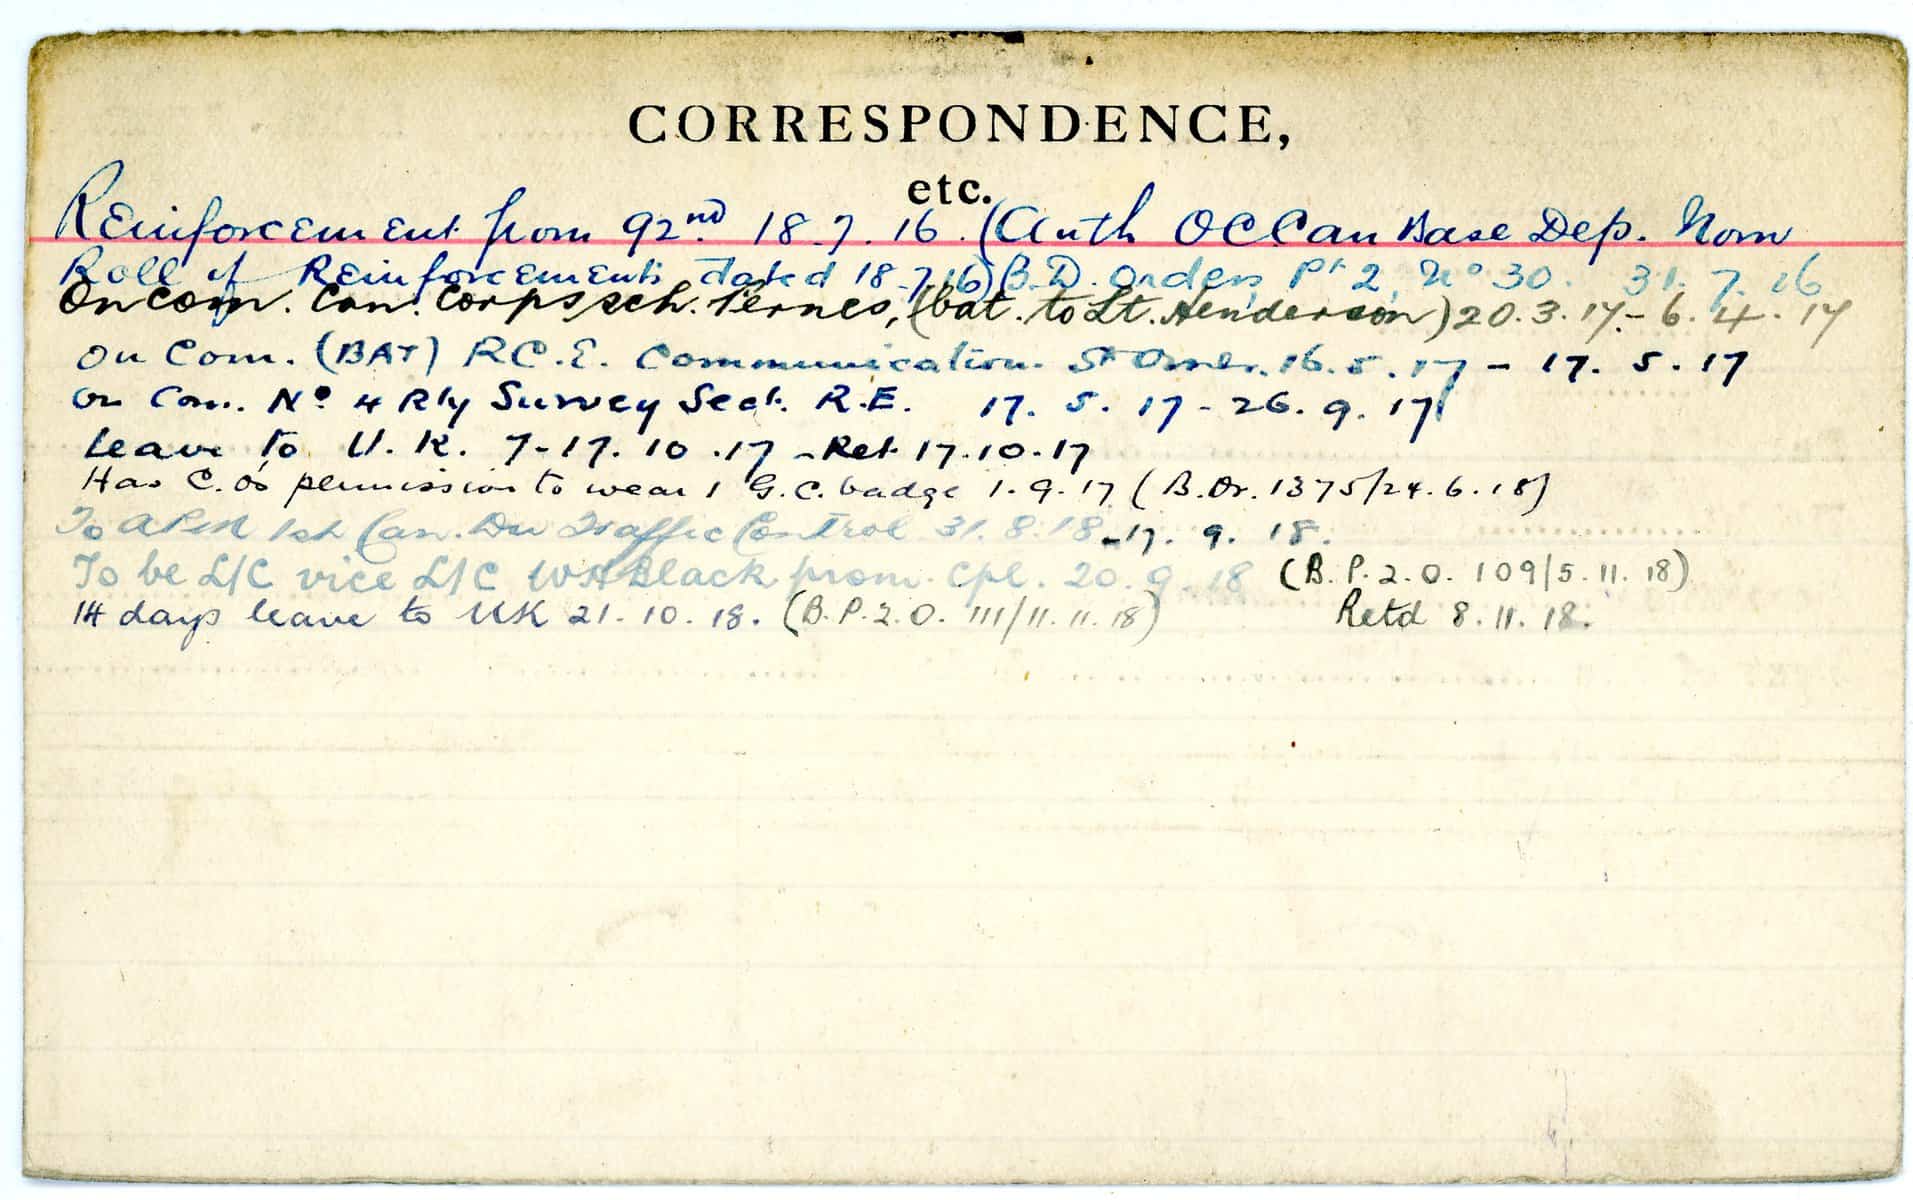 CORRESPONDENCE,
etc.
Reinforcement from 92nd 18.7.16. (Auth OC Can Base Dep. Nom
Roll of Reinforcements dated 18.7.16) B.D. Orders Pt 2, No 30. 31.7.16
On Com. Can. Corps Sch. Pernes, (bat. to Lt. Henderson) 20.3.17 - 6.4.17
On Com. (BAT) R.C.E. Communication. St Omer. 16.5.17 - 17.5.17
On Com. No 4 Rly Survey Sect. R.E. 17.5.17 - 26.9.17
Leave to U.K. 7-17.10.17 - Ret 17.10.17
Has C.O's permission to wear 1 G.C. badge 1.9.17 (B.Or. 1375/24.6.18)
To APM 1st Can. Div Traffic Control 31.8.18 - 17.9.18.
To be L/C vice L/C WH Black prom. Cpl. 20.9.18 (B.P.2.O. 109/5.11.18)
14 days leave to UK 21.10.18. (B.P.2.O. 111/11.11.18) Retd 8.11.18.